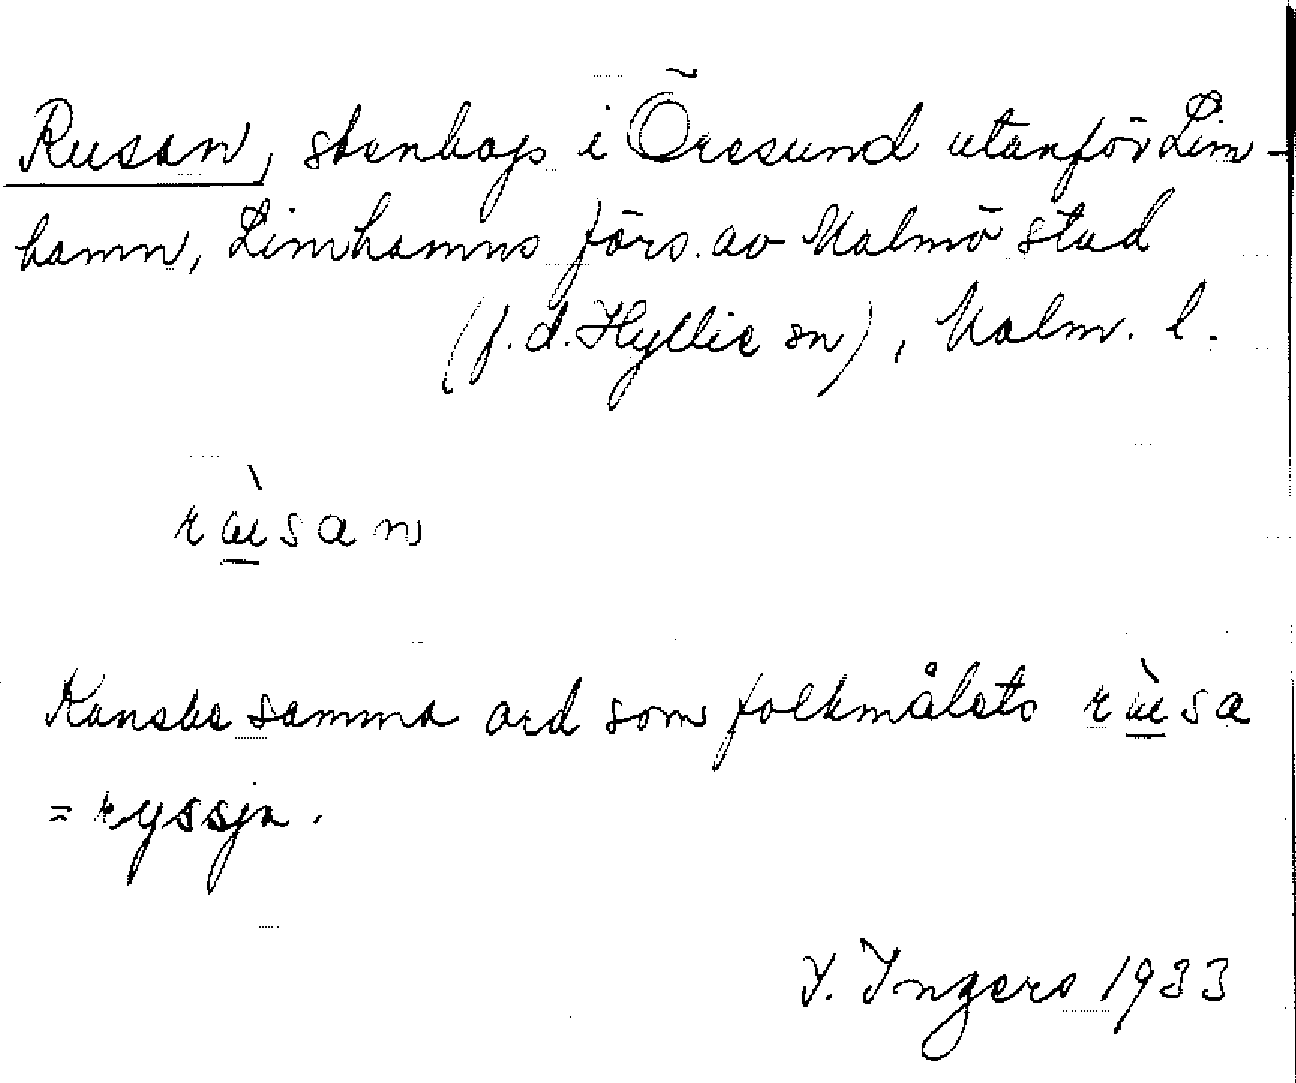 Rusan, stenhop i Öresund utanför Lim-
hamn, Limhamns förs. av Malmö stad
(f.d. Hyllie sn), Malm. l.
ræ̀san
Kanske samma ord som folkmålets ræ̀sa
= ryssja.
I. Ingers 1933